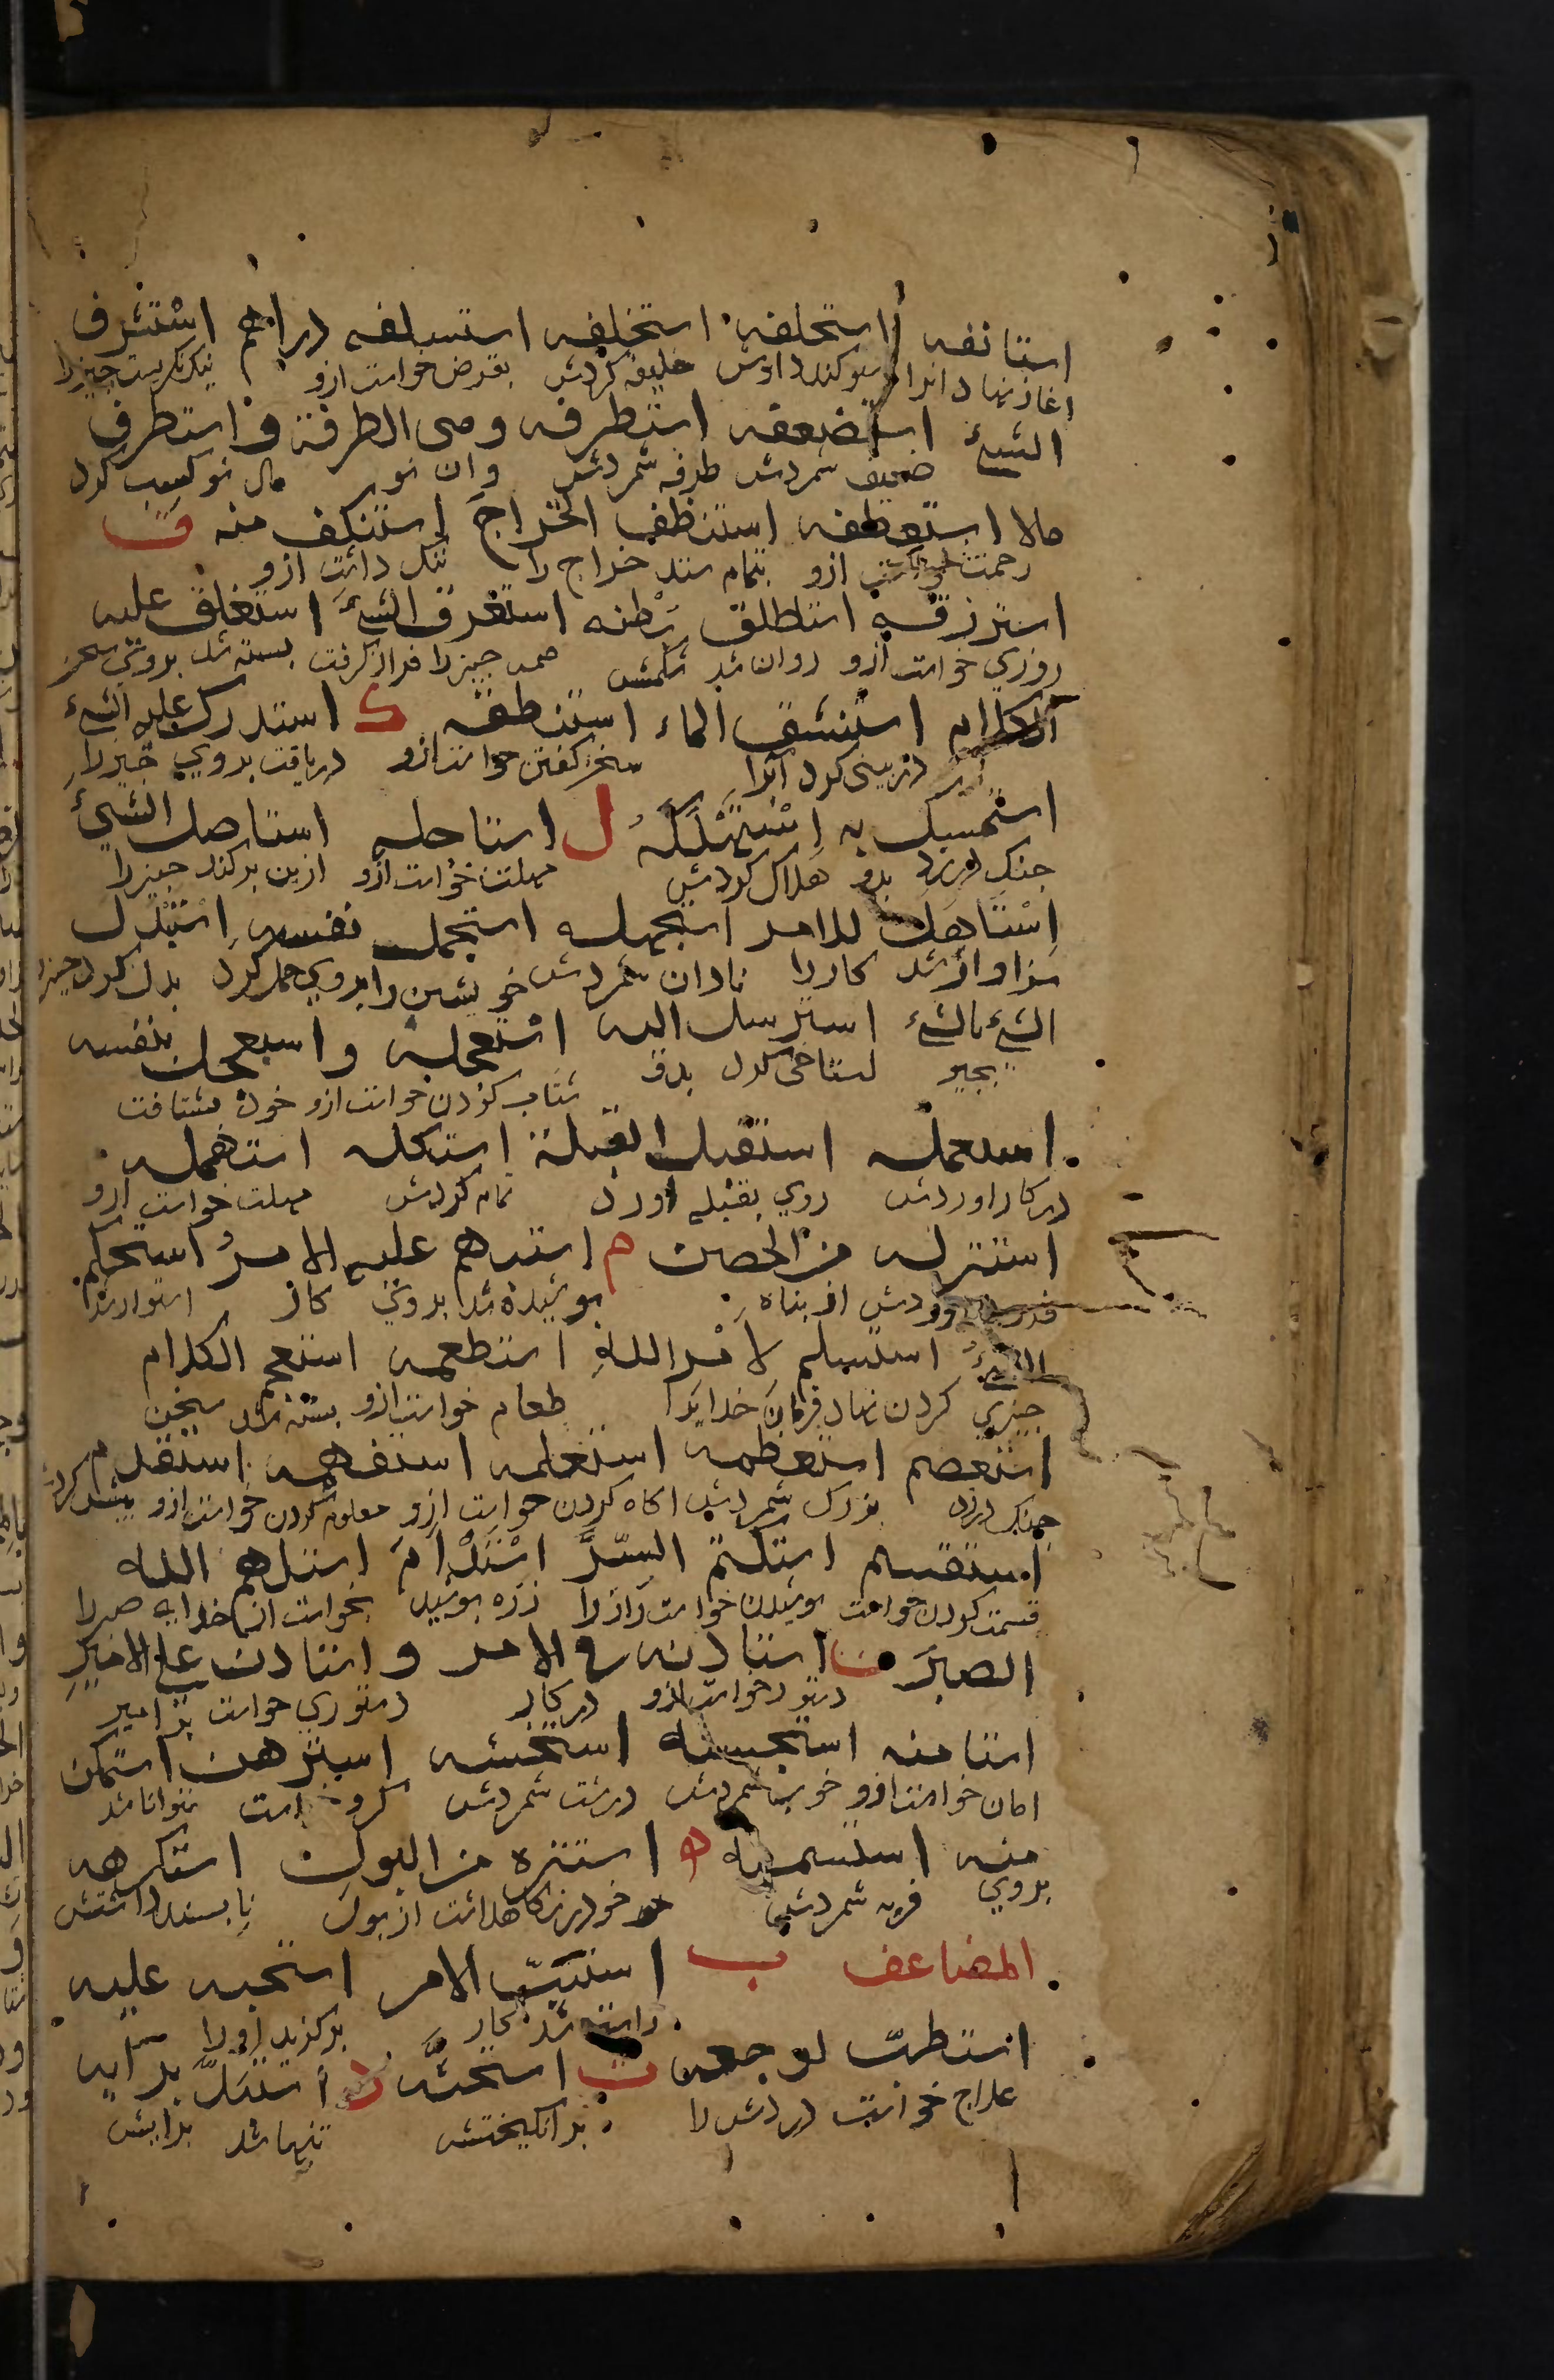 استانفه استحلفه استخلفه استسلفه دراهم استشرف
اغاز نهاد انرا سوكند دادش خليفه كردش بقرض خواست ازو نيك نكريست چيزرا
الشيءَ استضعفه استطرفه ومى الطرفة و استطرف
ضعيف شمردش طرفه شمردش وان نو مال نو كسب كرد
مالا استعطفه استنظف الخراجَ استنكف منه ق
رحمت خواست ازو بتمام ستد خراج را ننك داشت ازو
استرزقه استطلق بَطنه استغرق الشيءَ استغلق عليه
روزي خواست ازو روان شد شكمش همه چيزرا فراز كرفت بسته شد بروى سخن
الكلام استنشق الماء استنطقه ك استدرك عليه الشيءَ
در بينى كرد آبرا سخن كفتن خواست ازو دريافت بروي چيزرا
استمسك به اِسْتَهْلَكَهُ ل استاجله استاصل الشيءَ
چنك درزد بدو هلاك كردش مهلت خواست ازو از بن بركند چيزرا
اِسْتَاهَلَ للامر استجهله استحمل نفسه اِسْتَبْدل
سزاوار شد كاررا نادان شمردش خويشتن را بروي حمل كرد بدل كرد چيزرا
الشيءَ بالشيءِ استرسل اليه استعجله واستعجل بنفسه
بچيز كستاخى كرد بدو شتاب كردن خواست ازو خود بشتافت
استعمله استقبل القبلة استكمله استمهله
در كار اوردش روي بقبله اورد تمام كردش مهلت خواست ازو
استنزله من الحصن م استبهم عليه الامرُ استحكم
فرود اوردش از پناه پوشيده شد بروى كار استوار شد
الشيءُ استسلم لامر اللهِ استطعمه استعجم الكلام
چيزي كردن نهاد فرمان خدايرا طعام خواست ازو بسته شد سخن
استعصم استعظمه استعلمه استفهمه استقدم
چنك درزد بزرك شمردش اكاه كردن خواست ازو معلوم كردن خواست ازو
استقسم استكتم السّرَّ اسْتَلْاَمَ استلهم الله
قسمت كردن خواست پوشيدن خواست رازرا زره پوشيد بخواست از خداى صبررا
الصبرَ ن استاذنه في الامر واستاذن على الاميرِ
دستور خواست ازو در كار دستوري خواست بر امير
استامنه استحسنه استخشنه استرهن استمكن
امان خواست ازو خوب شمردش درشت شمردش كرو خواست توانا شد
منه استسمنه ه استنزه من البول استكرهه
بروي فربه شمردش خودرا نكاه داشت از بول ناپسند داشتش
المضاعف ب استتبّ الامر استحبه عليه
راسته شد كار بركزيد اورا
استطبّ لوجعه ث استحثَّه د استبدَّ برايه
علاج خواست دردش را برانكيختش تنها شد برايش